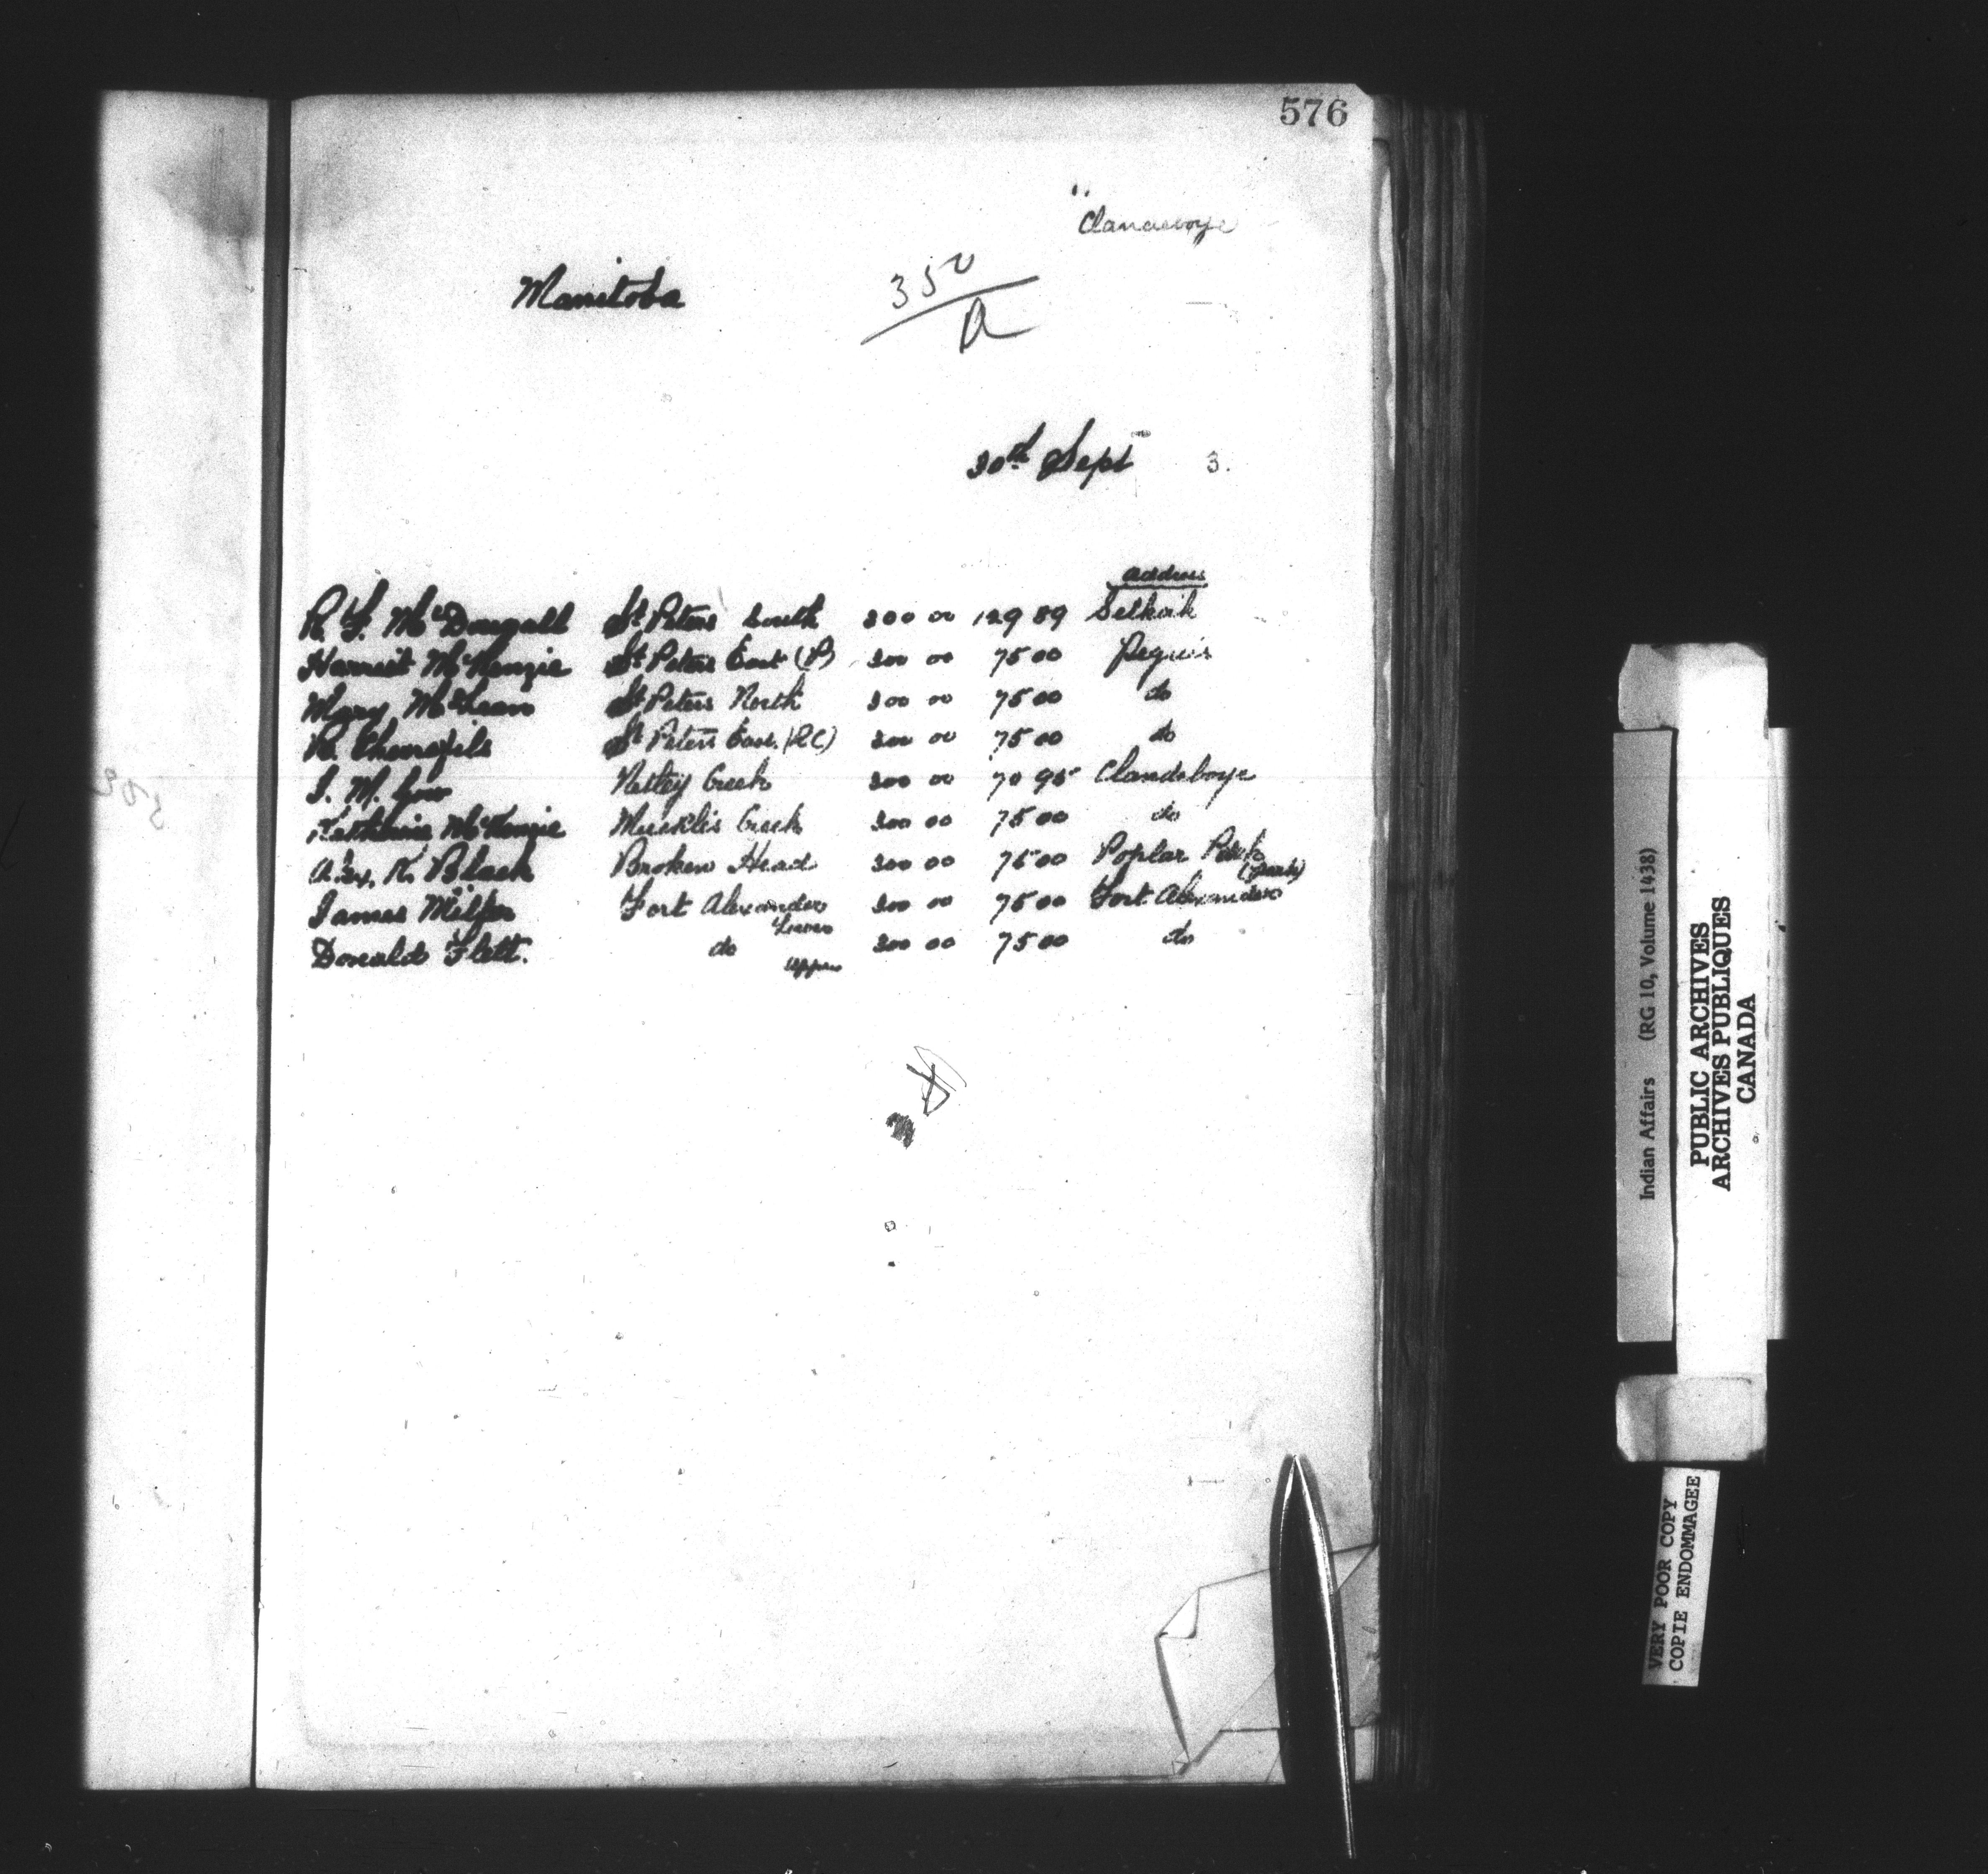 576
"
Clandeboye
Manitoba
350
A
30th Sept 3.
Address
R. F. McDougall St Peters South 300 00 129 89 Selkirk
Harriet McKenzie St Peters East (P) 300 00 75 00 Peguis
Mary McLean St Peters North 300 00 75 00 do
R. St Peters East (RC) 300 00 75 00 do
J. M. Gow Netley Creek 300 00 70 95 Clandeboye
Katherine McKenzie Muckles Creek 300 00 75 00 do
Alex. K. Black Broken Head 300 00 75 00 Poplar Park
(Park)
James Fort Alexander 300 00 75 00 Fort Alexander
Lower
Donald Flett. do 300 00 75 00 do
Upper
Indian Affairs (RG 10, Volume 1438)
PUBLIC ARCHIVES
ARCHIVES PUBLIQUES
CANADA
VERY POOR COPY
COPIE ENDOMMAGEE